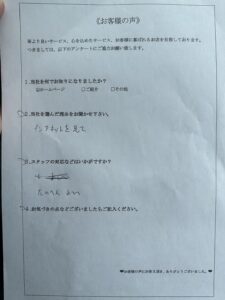 《お客様の声》
より良いサービス、心を込めたサービス、お客様に喜ばれるお店を目指しております。
つきましては、以下のアンケートにご協力お願い致します。
1.当社を何でお知りになりましたか?
☑ホームページ □ご紹介 □その他
2.当社を選んだ理由をお聞かせ下さい。
インターネットを見て
3.スタッフの対応などはいかがですか?
たいへん よい
4.お気づきの点などございましたらご記入ください。
♥お客様の声にお答え頂き、ありがとうございました。